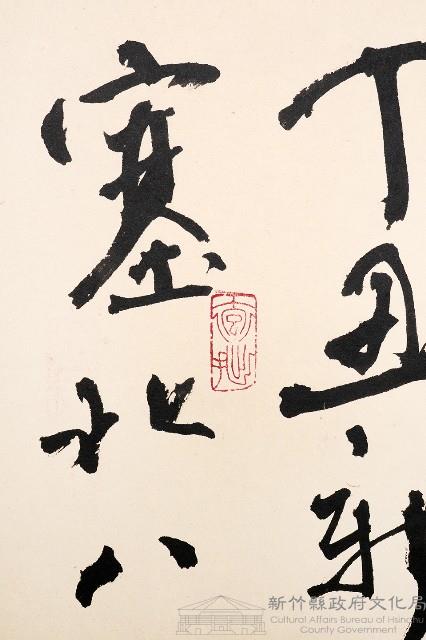 丁丑新
塞北八
新竹縣政府文化局
Cultural Affairs Bureau of Hsinchu
County Government